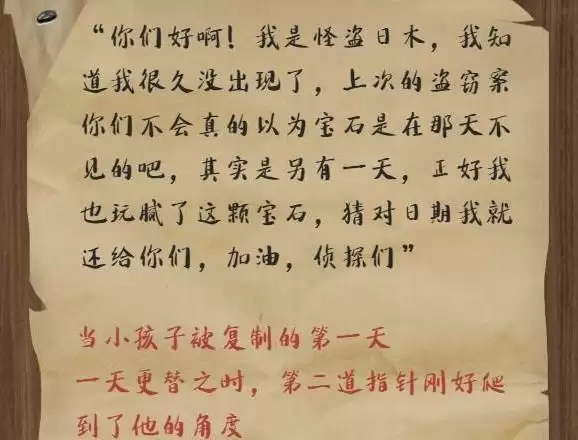 “你们好啊！我是怪盗日木，我知
道我很久没出现了，上次的盗窃案
你们不会真的以为宝石是在那天不
见的吧，其实是另有一天，正好我
也玩腻了这颗宝石，猜对日期我就
还给你们，加油，侦探们”
当小孩子被复制的第一天
一天更替之时，第二道指针刚好爬
到了他的角度